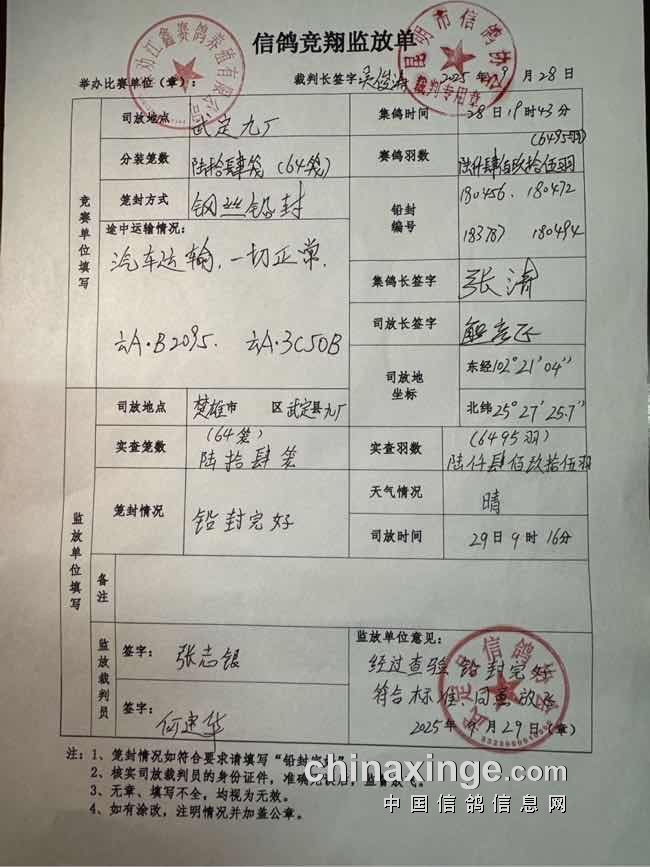 信鸽竞翔监放单
举办比赛单位（章）：
裁判长签字：
2025年9月28日
劢江鑫赛鸽养殖有限公司
昆明市信鸽协会
裁判专用章
竞赛单位填写
司放地点
武定九厂
集鸽时间
28日19时43分
分装笼数
陆拾肆笼（64笼）
赛鸽羽数
（6495羽）
陆仟肆佰玖拾伍羽
笼封方式
钢丝铅封
铅封编号
180456. 180472
183787 180494
途中运输情况：
汽车运输，一切正常.
云A·B2095. 云A·3C50B
集鸽长签字
张清
司放长签字
司放地坐标
东经102°21′04″
北纬25°27′25.7″
监放单位填写
司放地点
楚雄市 区武定县九厂
实查笼数
（64笼）
陆拾肆笼
实查羽数
（6495羽）
陆仟肆佰玖拾伍羽
笼封情况
铅封完好
天气情况
晴
司放时间
29日9时16分
备注
监放裁判员
签字：张志银
签字：何建华
监放单位意见：
经过查验铅封完好
符合标准，同意放飞
2025年9月29日（章）
信鸽
注：1、笼封情况如符合要求请填写“铅封完好”
2、核实司放裁判员的身份证件，准确无误后，监督放飞。
3、无章、填写不全，均视为无效。
4、如有涂改，注明情况并加盖公章。
chinaxinge.com
中国信鸽信息网